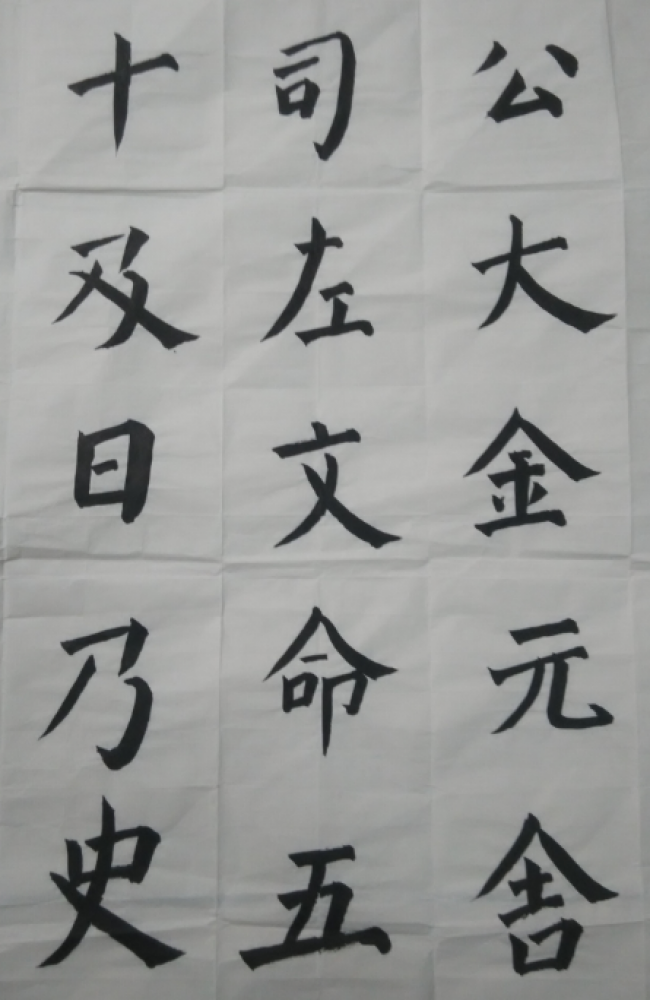 公大金元舍
司左文命五
十及日乃史